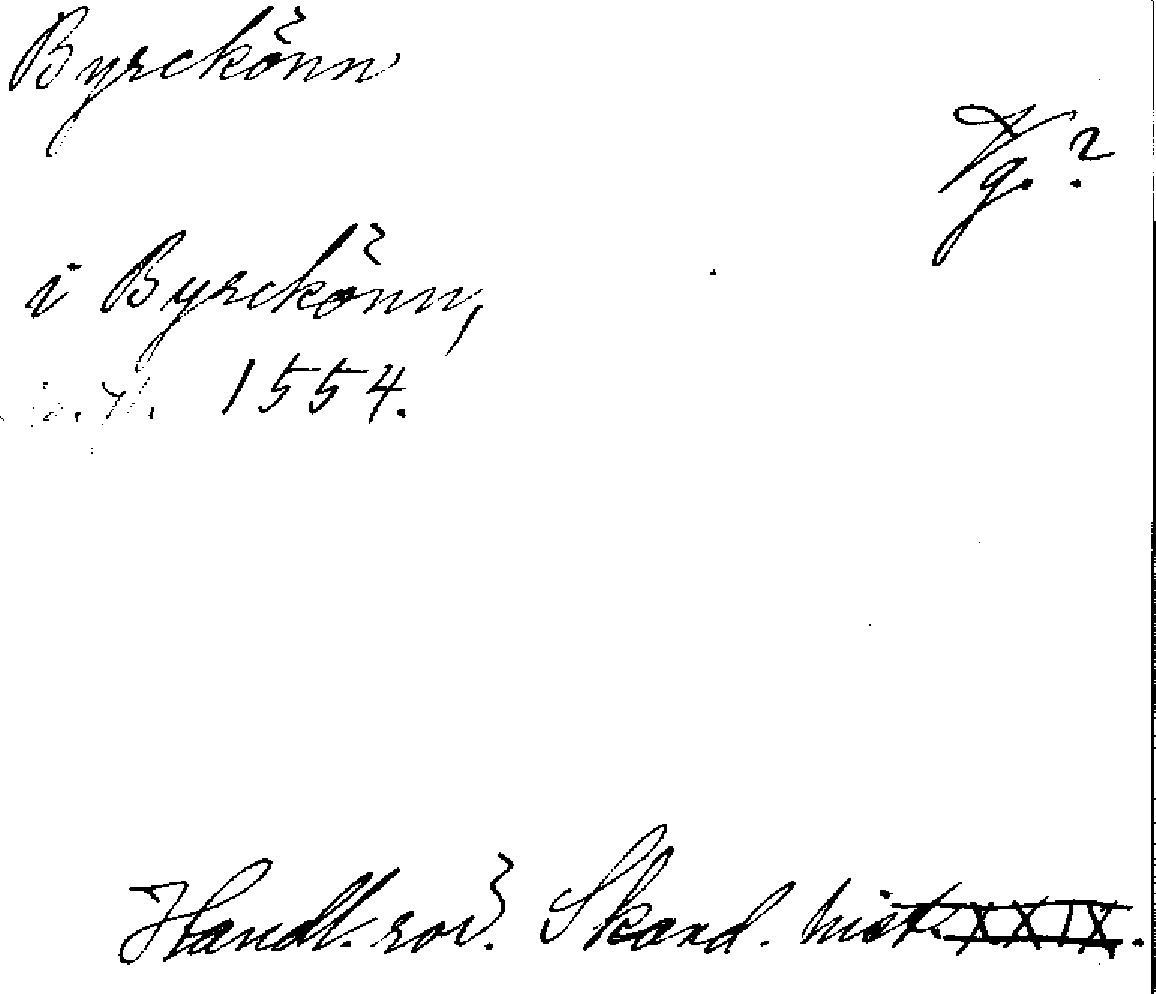 Byrckönn
Vg.?
i Byrckönn,
1554.
Handl. rör. Skand. hist. XXIX.